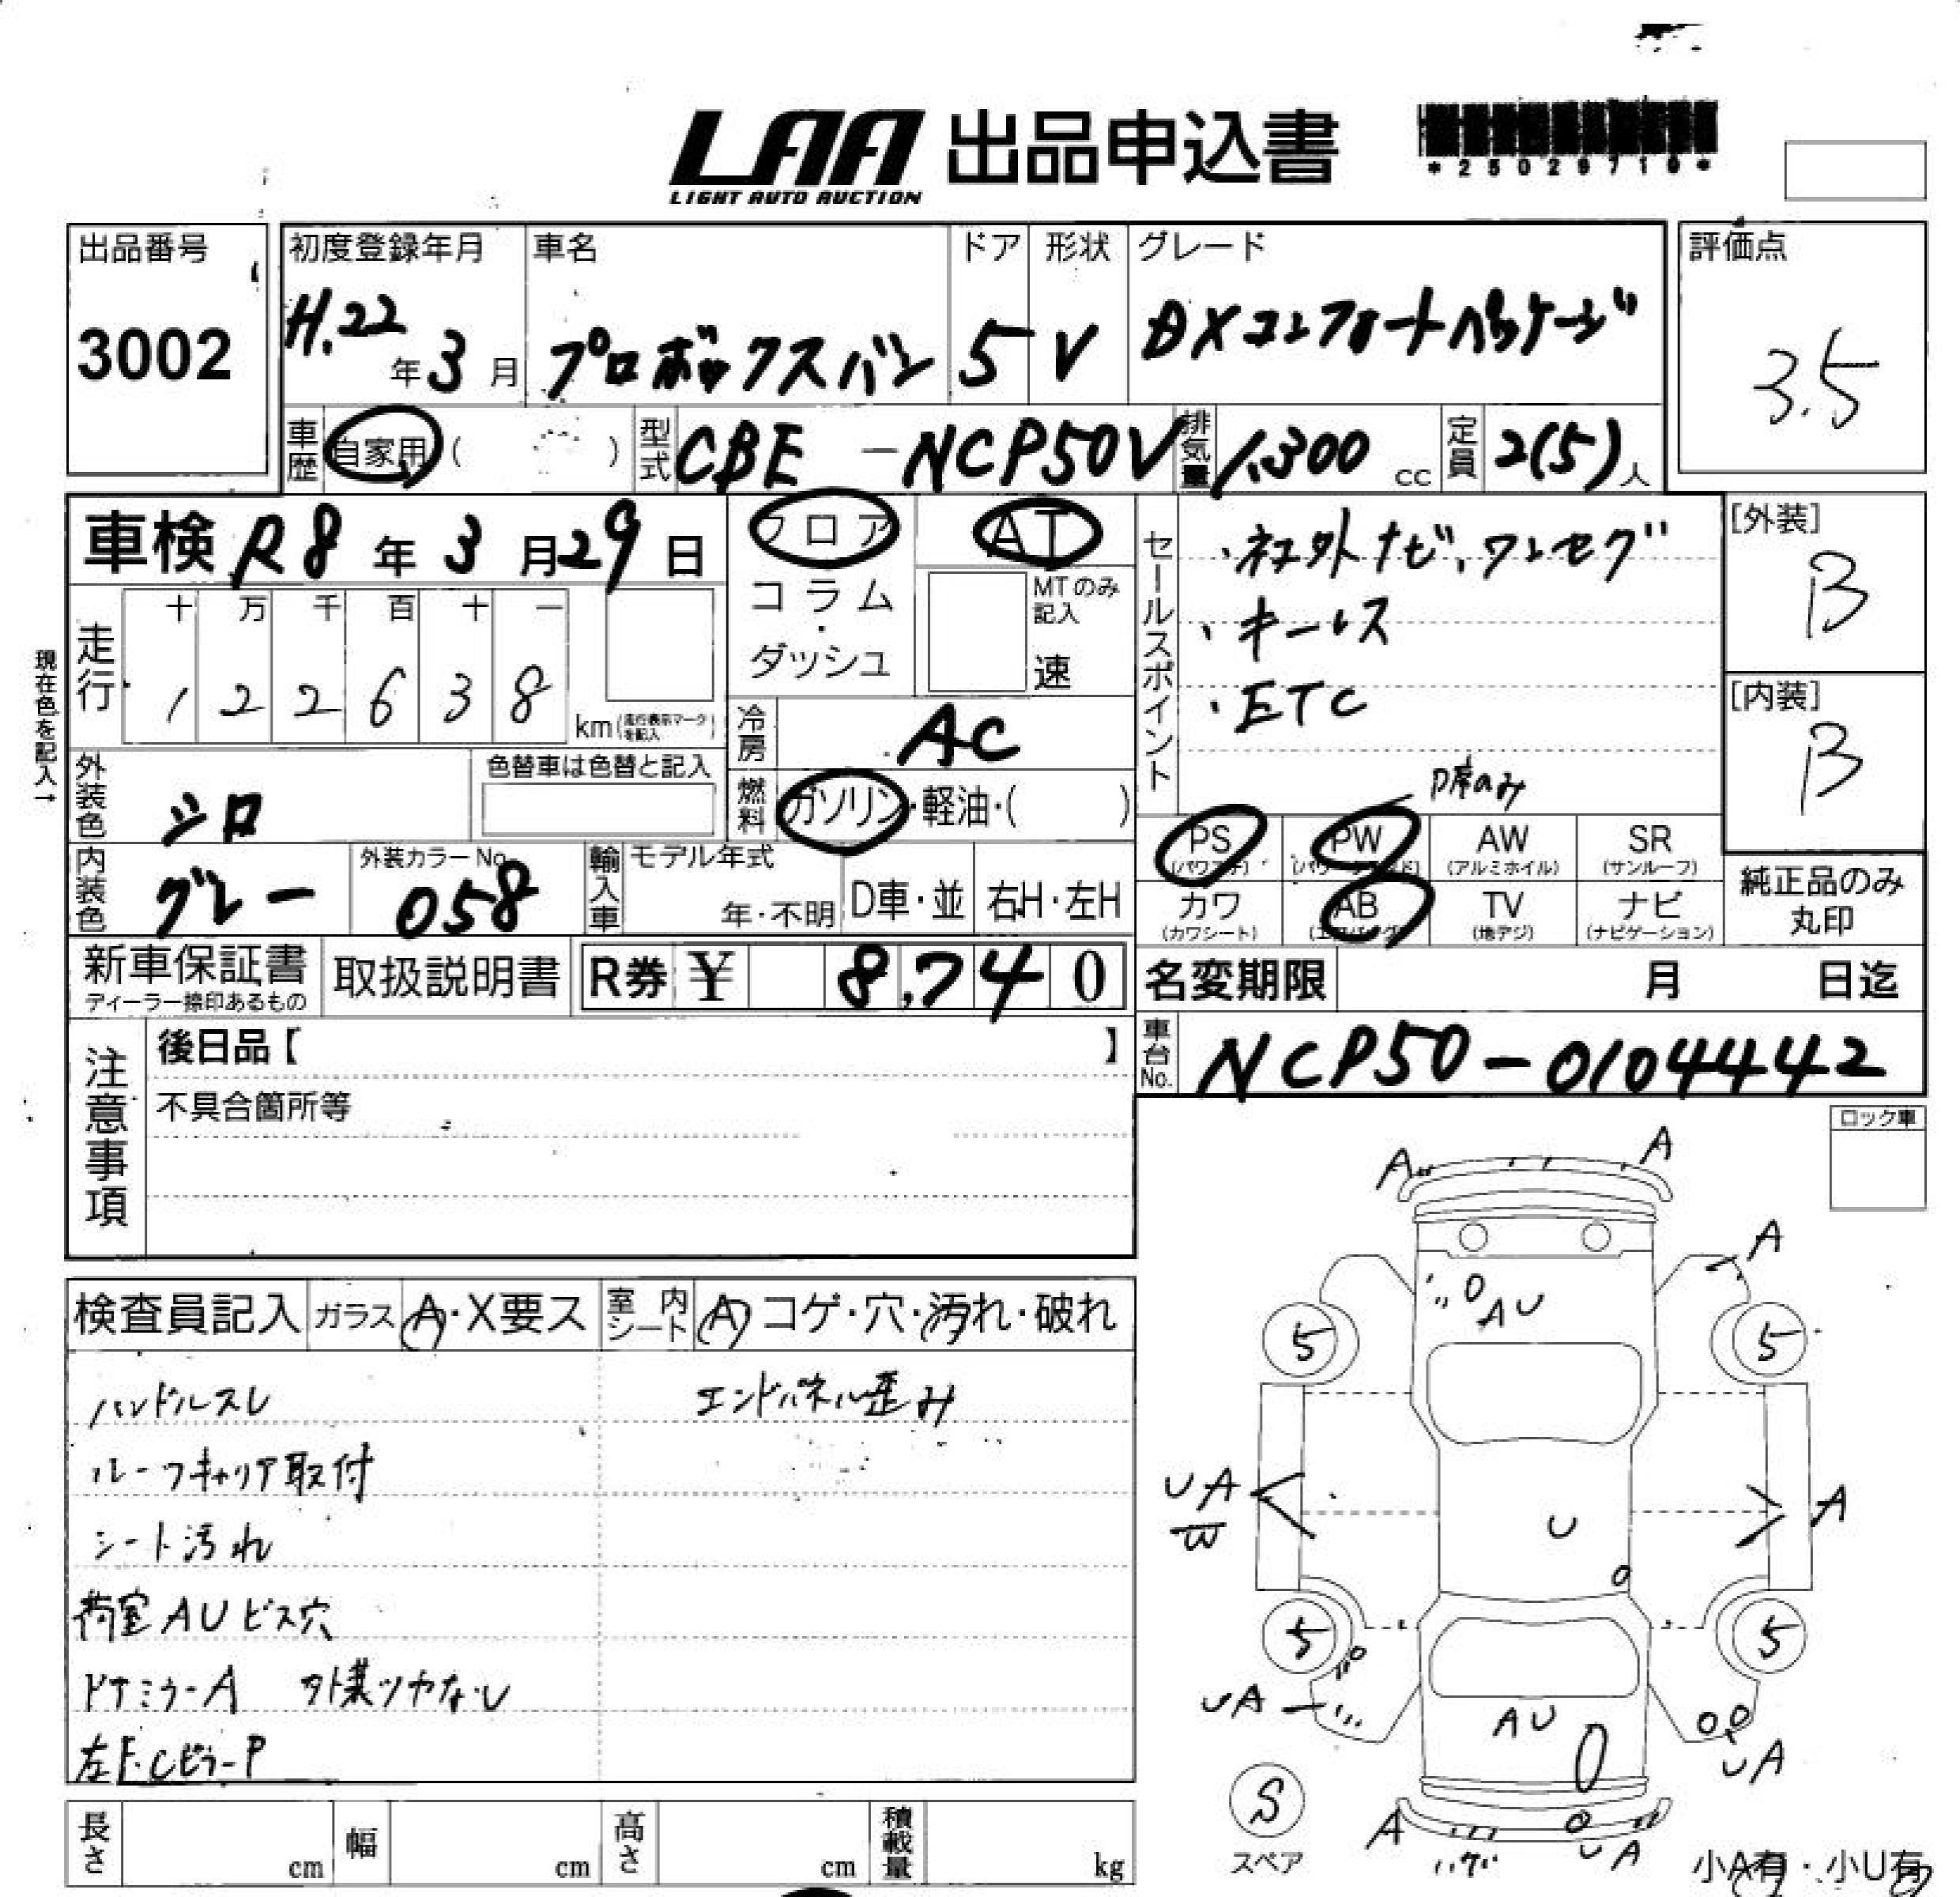 LAA 出品申込書
LIGHT AUTO AUCTION
*25029719*
出品番号
3002
初度登録年月
H.22年3月
車名
プロボックスバン
ドア
5
形状
V
グレード
DXコンフォートパッケージ
評価点
3.5
車歴 自家用 ( )
型式 CBE-NCP50V
排気量 1,300 cc
定員 2(5)人
車検 R8年3月29日
フロア
コラム・ダッシュ
AT
MTのみ記入
速
セールスポイント
・社外ナビ、ワンセグ
・キーレス
・ETC
D席のみ
[外装]
B
[内装]
B
現在色を記入→
走行
十 万 千 百 十 一
1 2 2 6 3 8 km (走行表示マークを記入)
冷房 AC
外装色 シロ
色替車は色替と記入
燃料 ガソリン・軽油・( )
内装色 グレー
外装カラーNo.
058
輸入車 モデル年式
年・不明
D車・並
右H・左H
PS (パワステ)
PW (パワーウインド)
AW (アルミホイル)
SR (サンルーフ)
カワ (カワシート)
AB (エアバッグ)
TV (地デジ)
ナビ (ナビゲーション)
純正品のみ丸印
新車保証書
ディーラー捺印あるもの
取扱説明書
R券 ¥ 8,740
名変期限 月 日迄
車台No. NCP50-0104442
注意事項
後日品【 】
不具合箇所等
ロック車
検査員記入
ガラス A・X要ス
室内シート A コゲ・穴・汚れ・破れ
ハンドルスレ
エンドパネル歪み
ルーフキャリア取付
シート汚れ
荷室AUビス穴
ドアミラーA 外装ツヤなし
左F.CピラーP
A
A
A
AU
5
5
UA
W
A
U
5
5
UA
AU
UA
S
スペア
A
UA
小A有・小U有
長さ cm
幅 cm
高さ cm
積載量 kg